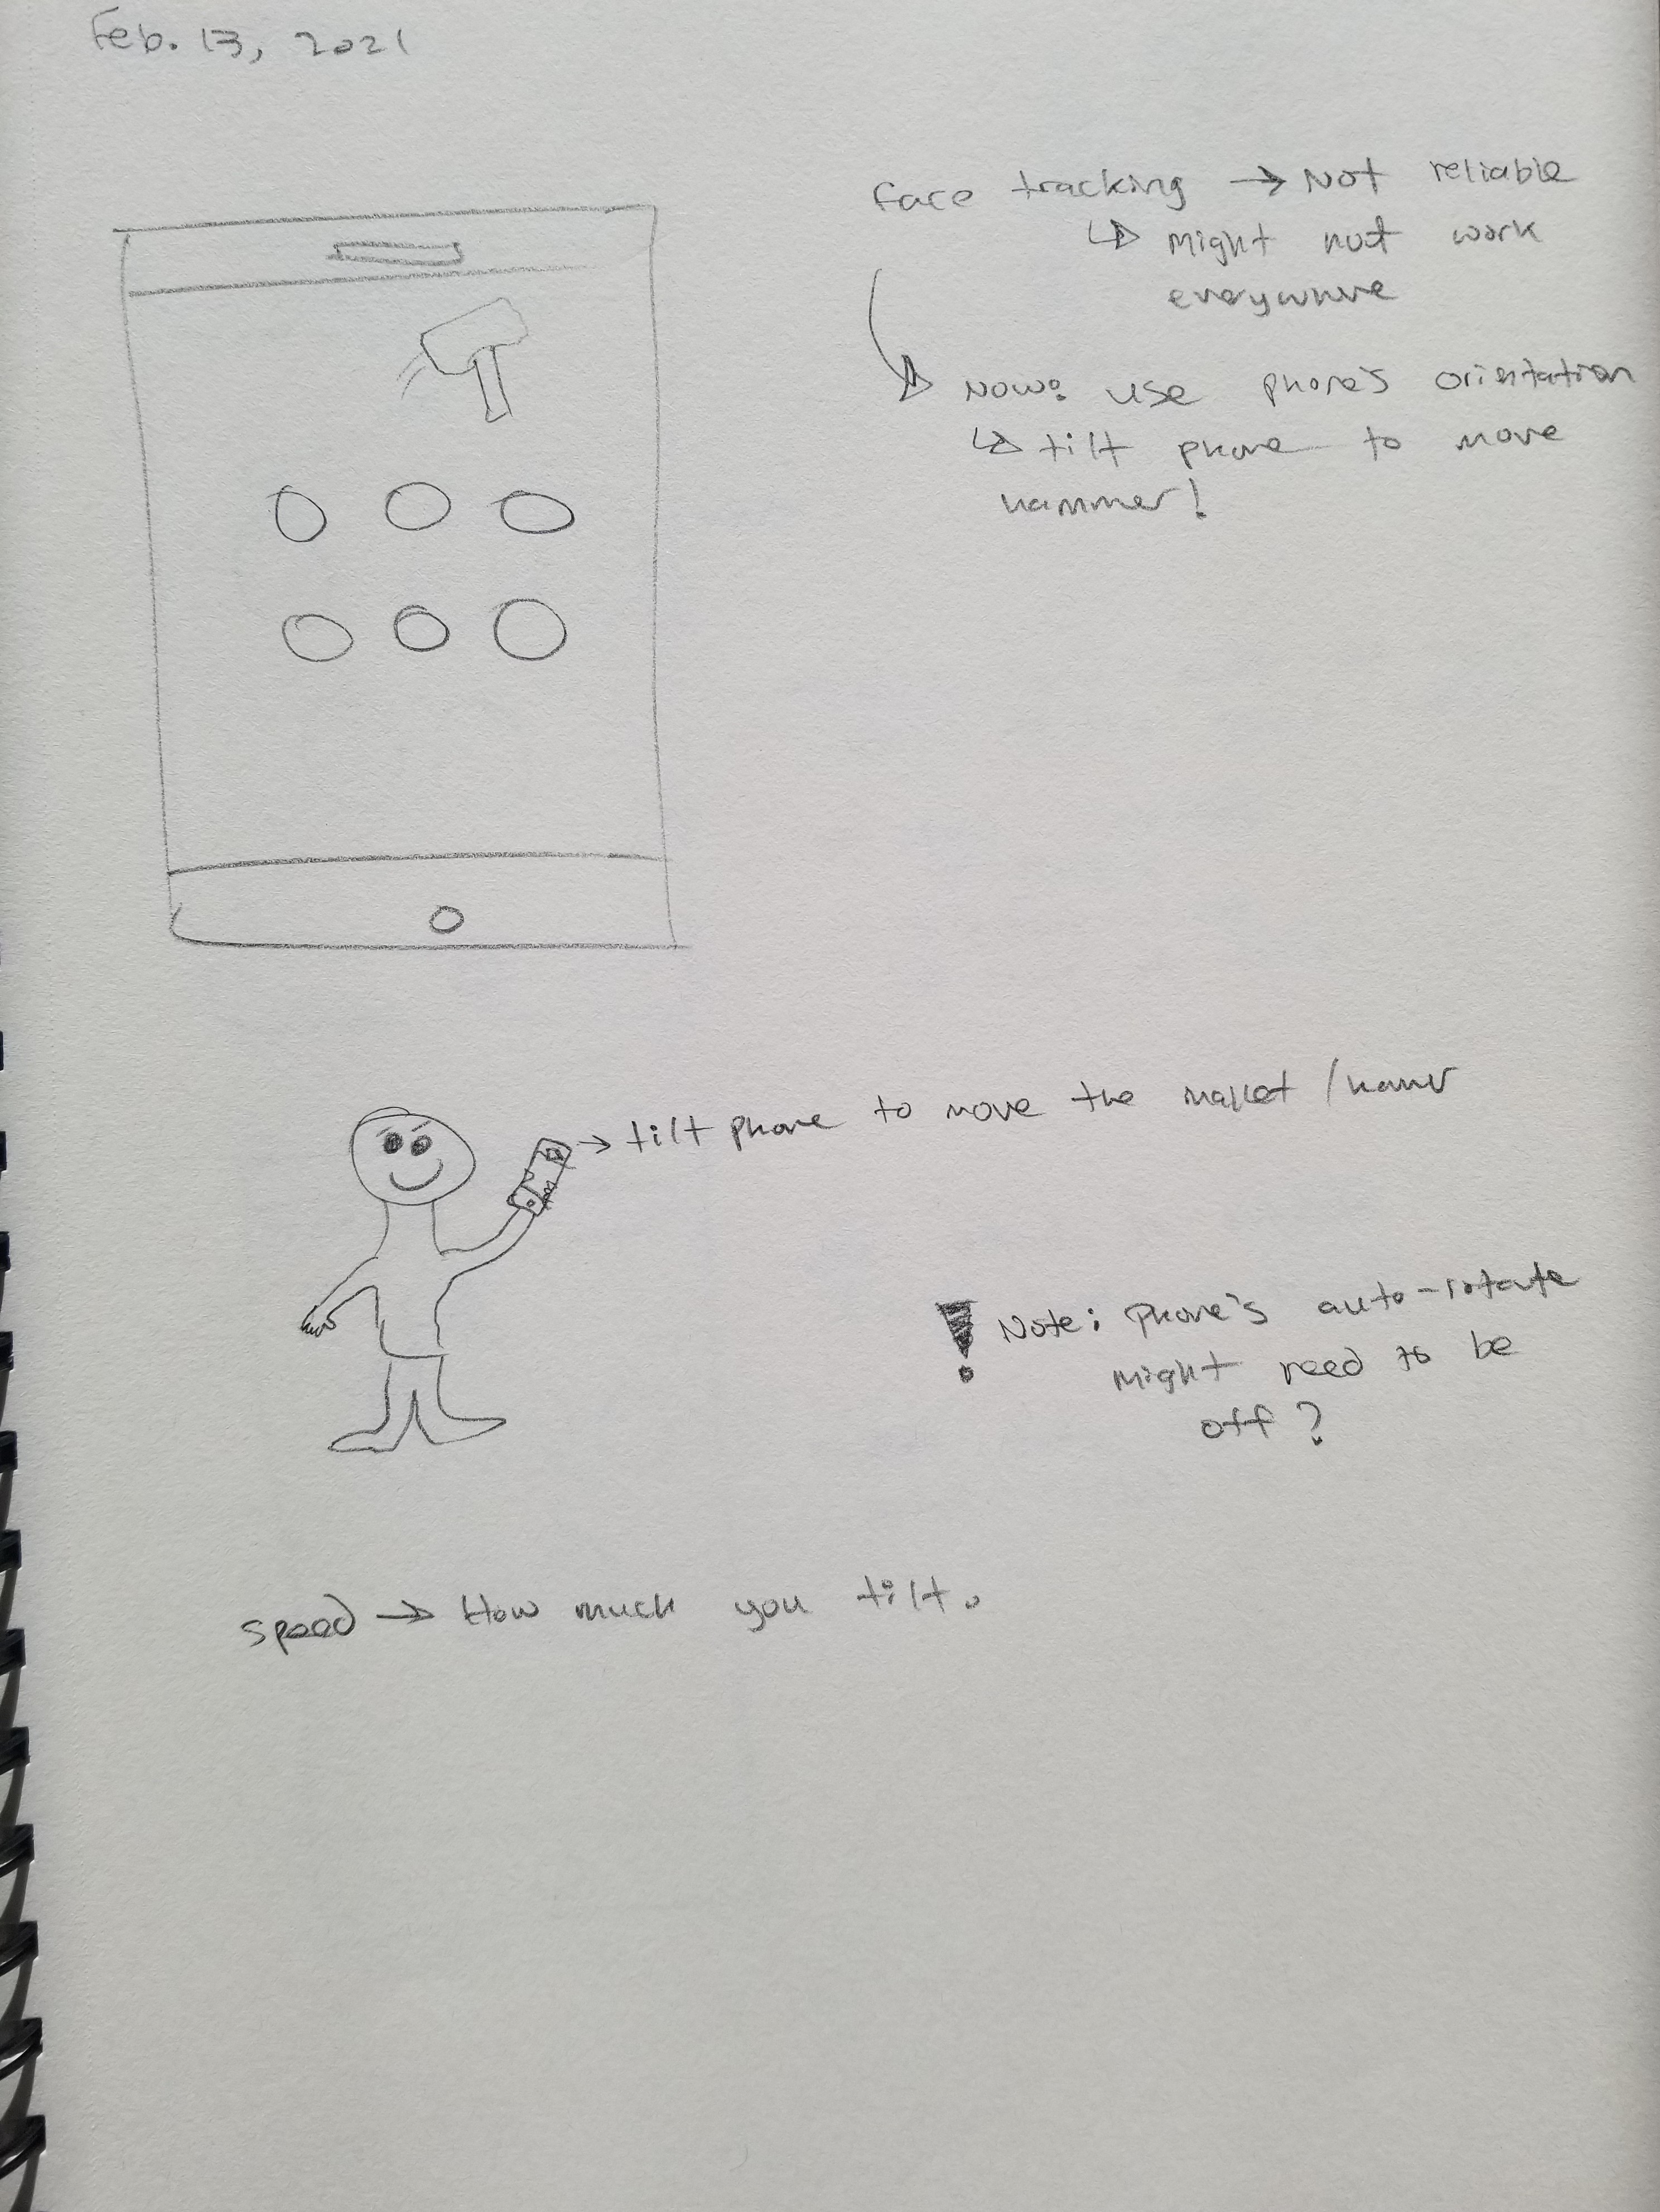 Feb. 13, 2021
face tracking → Not reliable
↳ Might not work
everywhere
Now: use phone's orientation
↳ tilt phone to move
hammer!
→ tilt phone to move the mallet / hammr
! Note: Phone's auto-rotate
might need to be
off?
speed → How much you tilt.